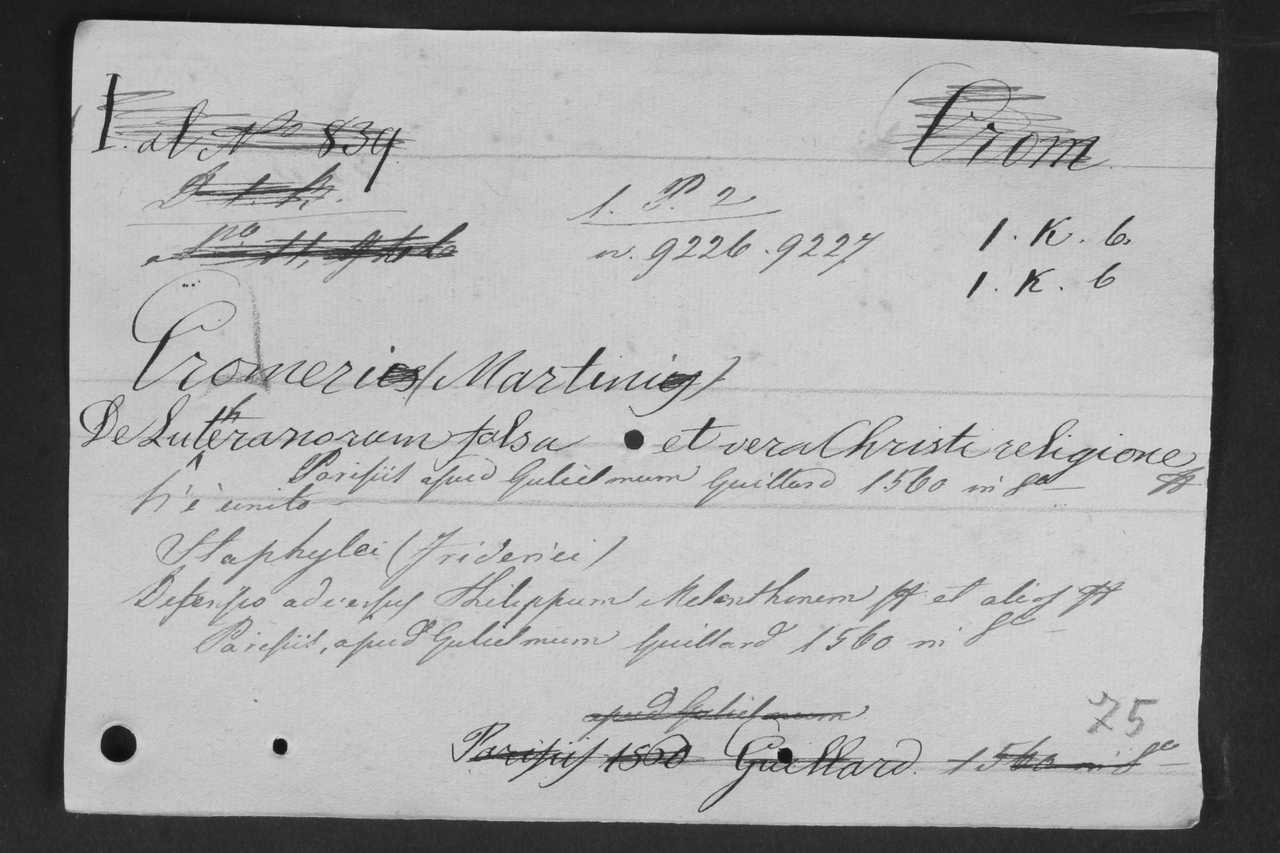 I. al Nº 839
Crom
1. P. 2
n. 9226. 9227
1. K. 6.
1. K. 6
Cromeri (Martini)
De Lutheranorum falsa et vera Christi religione
Parisiis apud Gulielmum Guillard 1560 in 8º
V'è unito
Staphylei (Friderici)
Defensio adversus Philippum Melanthonem et alios
Parisiis, apud Gulielmum Guillard 1560 in 8º
75
apud Gulielmum
Parisiis 1560 Guillard. 1560 in 8º